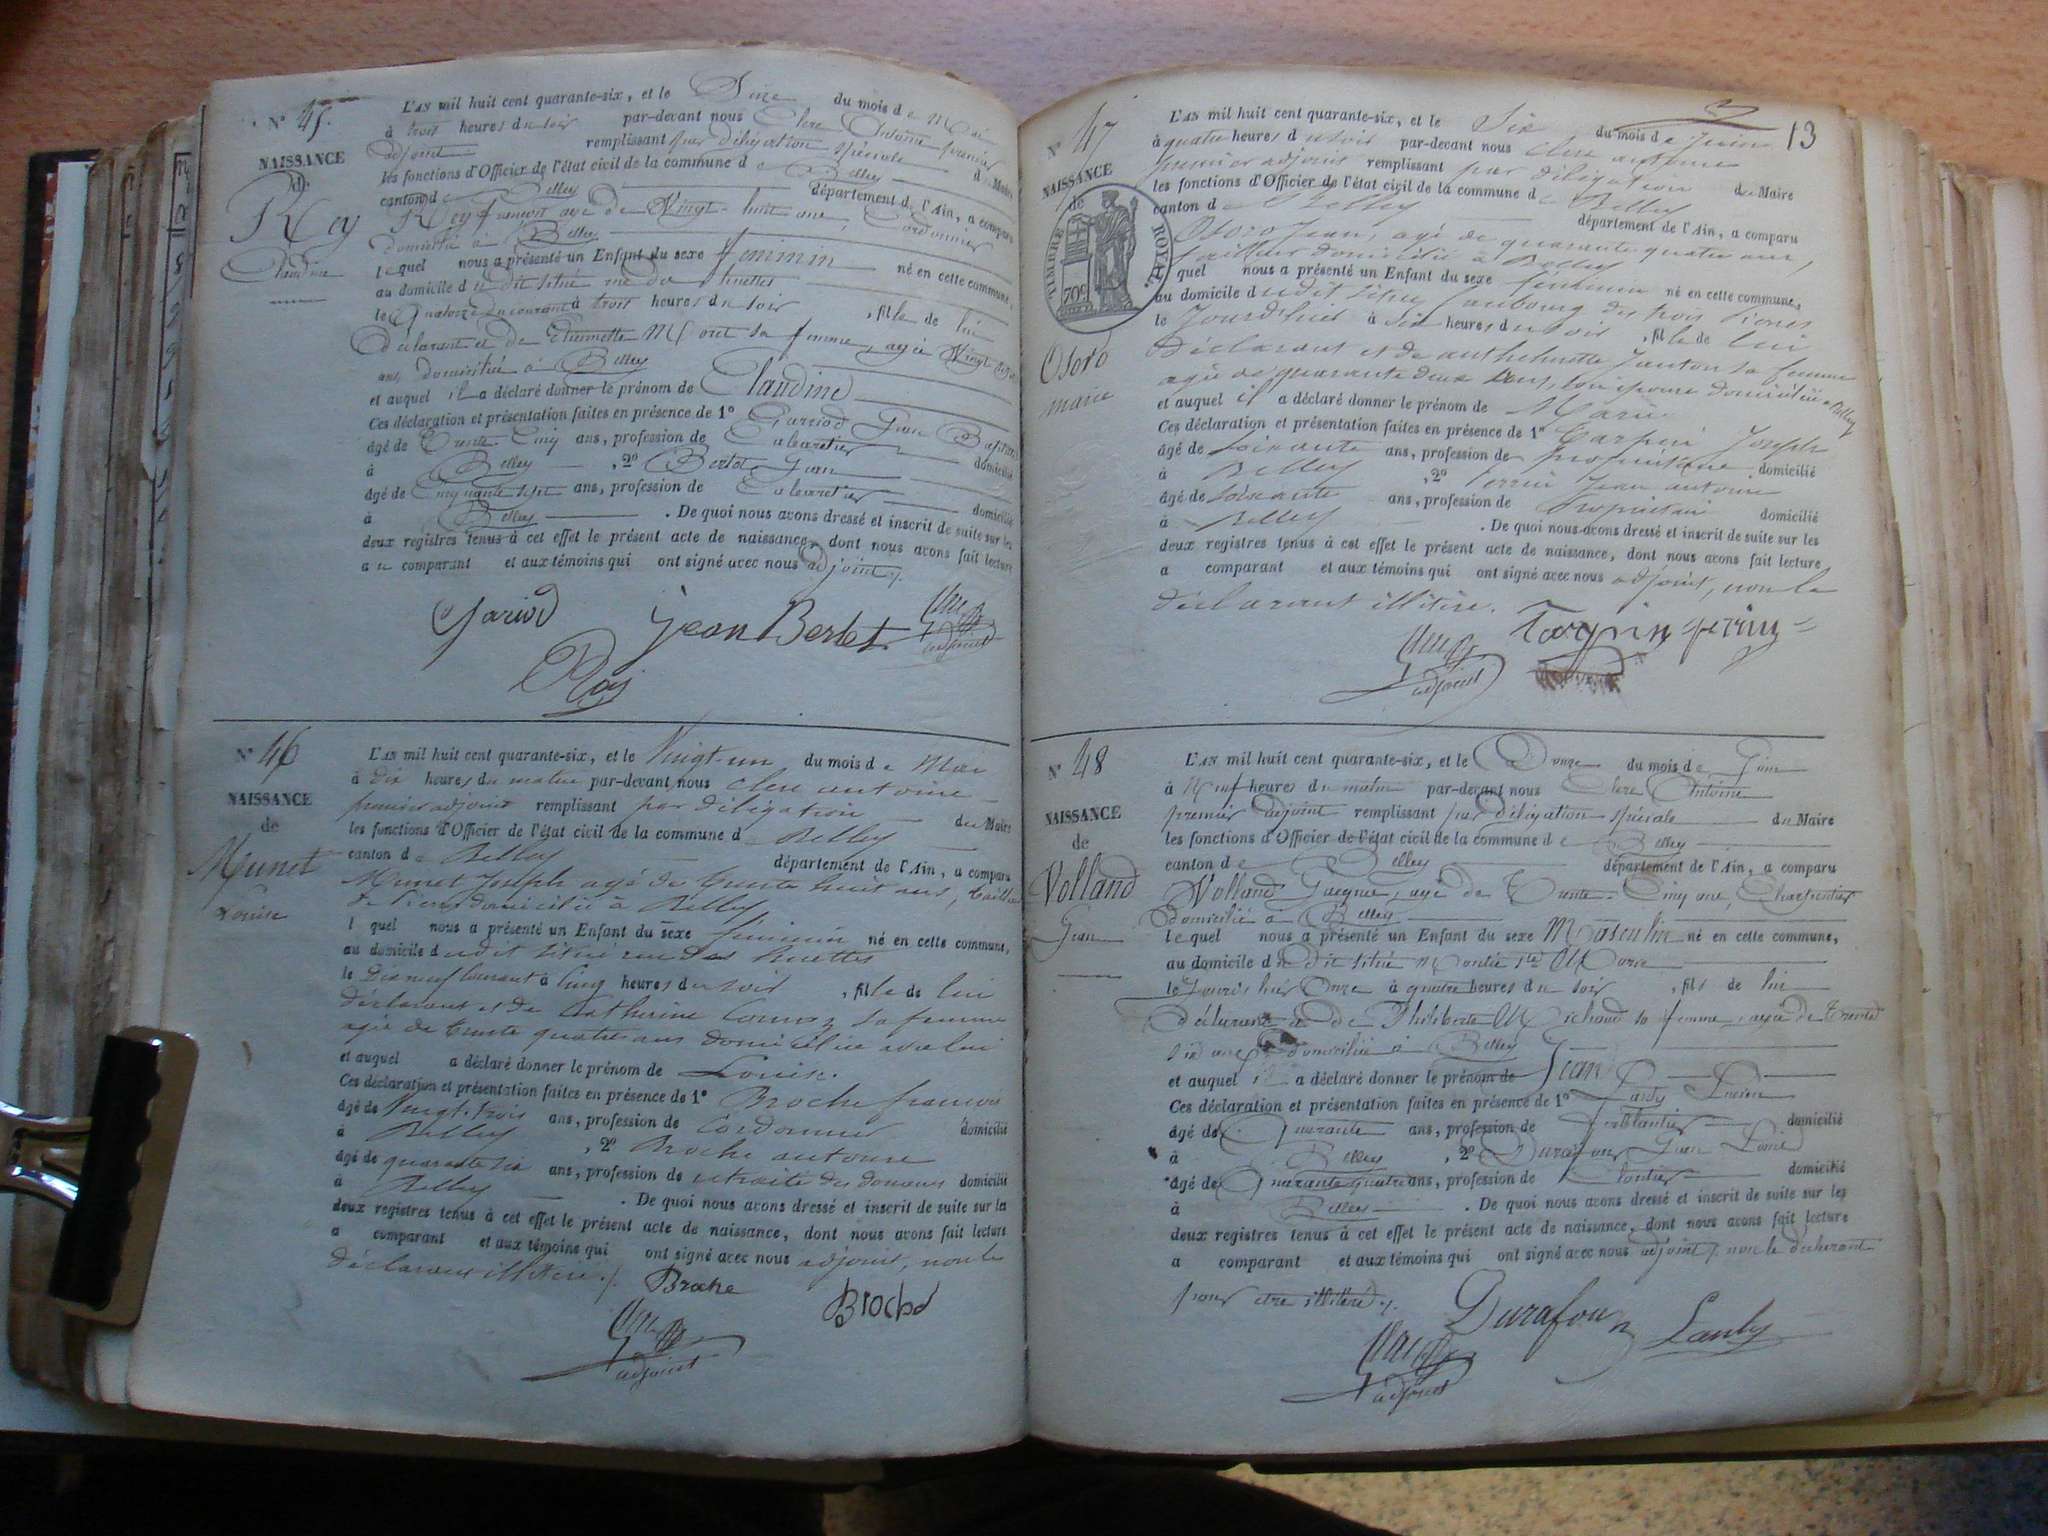 N° 45.
NAISSANCE
de
Rey
Claudine
L'AN mil huit cent quarante-six, et le Seize du mois de Mai
à trois heures du soir par-devant nous Clerc Antoine premier
adjoint remplissant par délégation spéciale du Maire
les fonctions d'Officier de l'état civil de la commune de Belley
canton de Belley département de l'Ain, a comparu
Rey François agé de Vingt-huit ans, Cordonnier
domicilié à Belley
lequel nous a présenté un Enfant du sexe feminin né en cette commune,
au domicile du dit situé rue des
le Quatorze du courant à trois heures du soir, fille de lui
déclarant et de Etiennette sa femme, agée Vingt
ans domiciliée à Belley
et auquel il a déclaré donner le prénom de Claudine
Ces déclaration et présentation faites en présence de 1° Garriod Jean Baptiste
âgé de Trente-Cinq ans, profession de Cabaretier domicilié
à Belley, 2° Bertet Jean
âgé de Cinquante sept ans, profession de Cabaretier domicilié
à Belley. De quoi nous avons dressé et inscrit de suite sur les
deux registres tenus à cet effet le présent acte de naissance, dont nous avons fait lecture
au comparant et aux témoins qui ont signé avec nous adjoint
Gariod Jean Bertet
adjoint
Rey
N° 46
NAISSANCE
de
Munet
Louise
L'AN mil huit cent quarante-six, et le Vingt-un du mois de Mai
à dix heures du matin par-devant nous Clerc antoine
premier adjoint remplissant par délégation du Maire
les fonctions d'Officier de l'état civil de la commune d Belley
canton de Belley département de l'Ain, a comparu
Munet Joseph agé de trente huit ans, tailleur
de pierre domicilié à Belley
lequel nous a présenté un Enfant du sexe feminin né en cette commune,
au domicile du dit situé rue des
le Dix neuf Courant à Cinq heures du soir, fille de lui
déclarant et de Catherine sa femme
agée de trente quatre ans domiciliée avec lui
et auquel a déclaré donner le prénom de Louise.
Ces déclaration et présentation faites en présence de 1° Broche francois
âgé de Vingt-trois ans, profession de Cordonnier domicilié
à Belley, 2° Broche antoine
âgé de quarante six ans, profession de retraité des douanes domicilié
à Belley. De quoi nous avons dressé et inscrit de suite sur les
deux registres tenus à cet effet le présent acte de naissance, dont nous avons fait lecture
a comparant et aux témoins qui ont signé avec nous adjoint, non le
déclarant illitéré.
Broche Broche
adjoint
13
N° 47
NAISSANCE
de
TIMBRE ROYAL.
70c
Osoro
marie
L'AN mil huit cent quarante-six, et le Six du mois de Juin
à quatre heures du soir par-devant nous Clerc antoine
premier adjoint remplissant par délégation du Maire
les fonctions d'Officier de l'état civil de la commune de Belley
canton de Belley département de l'Ain, a comparu
Osoro Jean, agé de quarante quatre ans,
tailleur domicilié à Belley
quel nous a présenté un Enfant du sexe féminin né en cette commune,
au domicile du dit situé faubourg des trois
le Jourd'hui à Six heures du soir, fille de lui
déclarant et de sa femme
agée de quarante deux ans, son épouse domiciliée à Belley
et auquel il a déclaré donner le prénom de Marie
Ces déclaration et présentation faites en présence de 1° Joseph
âgé de Soixante ans, profession de propriétaire domicilié
à Belley, 2° Perrin Jean antoine
âgé de Soixante ans, profession de propriétaire domicilié
à Belley. De quoi nous avons dressé et inscrit de suite sur les
deux registres tenus à cet effet le présent acte de naissance, dont nous avons fait lecture
a comparant et aux témoins qui ont signé avec nous adjoint, non le
déclarant illitéré.
perrin
adjoint
N° 48
NAISSANCE
de
Volland
Jean
L'AN mil huit cent quarante-six, et le Douze du mois de Juin
à Neuf heures du matin par-devant nous Clerc Antoine
premier adjoint remplissant par délégation spéciale du Maire
les fonctions d'Officier de l'état civil de la commune de Belley
canton de Belley département de l'Ain, a comparu
Volland Jacques, agé de Trente-Cinq ans, Charpentier
domicilié à Belley
lequel nous a présenté un Enfant du sexe Masculin né en cette commune,
au domicile du dit situé
le Jour d'hier Onze à quatre heures du soir, fils de lui
déclarant et de Philiberte Michaud sa femme, agée de Trente
six ans domiciliée à Belley
et auquel il a déclaré donner le prénom de Jean
Ces déclaration et présentation faites en présence de 1° Lanby
âgé de Quarante ans, profession de Ferblantier domicilié
à Belley, 2° Durafour Jean Louis
âgé de Quarante quatre ans, profession de domicilié
à Belley. De quoi nous avons dressé et inscrit de suite sur les
deux registres tenus à cet effet le présent acte de naissance, dont nous avons fait lecture
a comparant et aux témoins qui ont signé avec nous adjoint, non le déclarant
pour être illitéré.
Durafour Lanby
adjoint